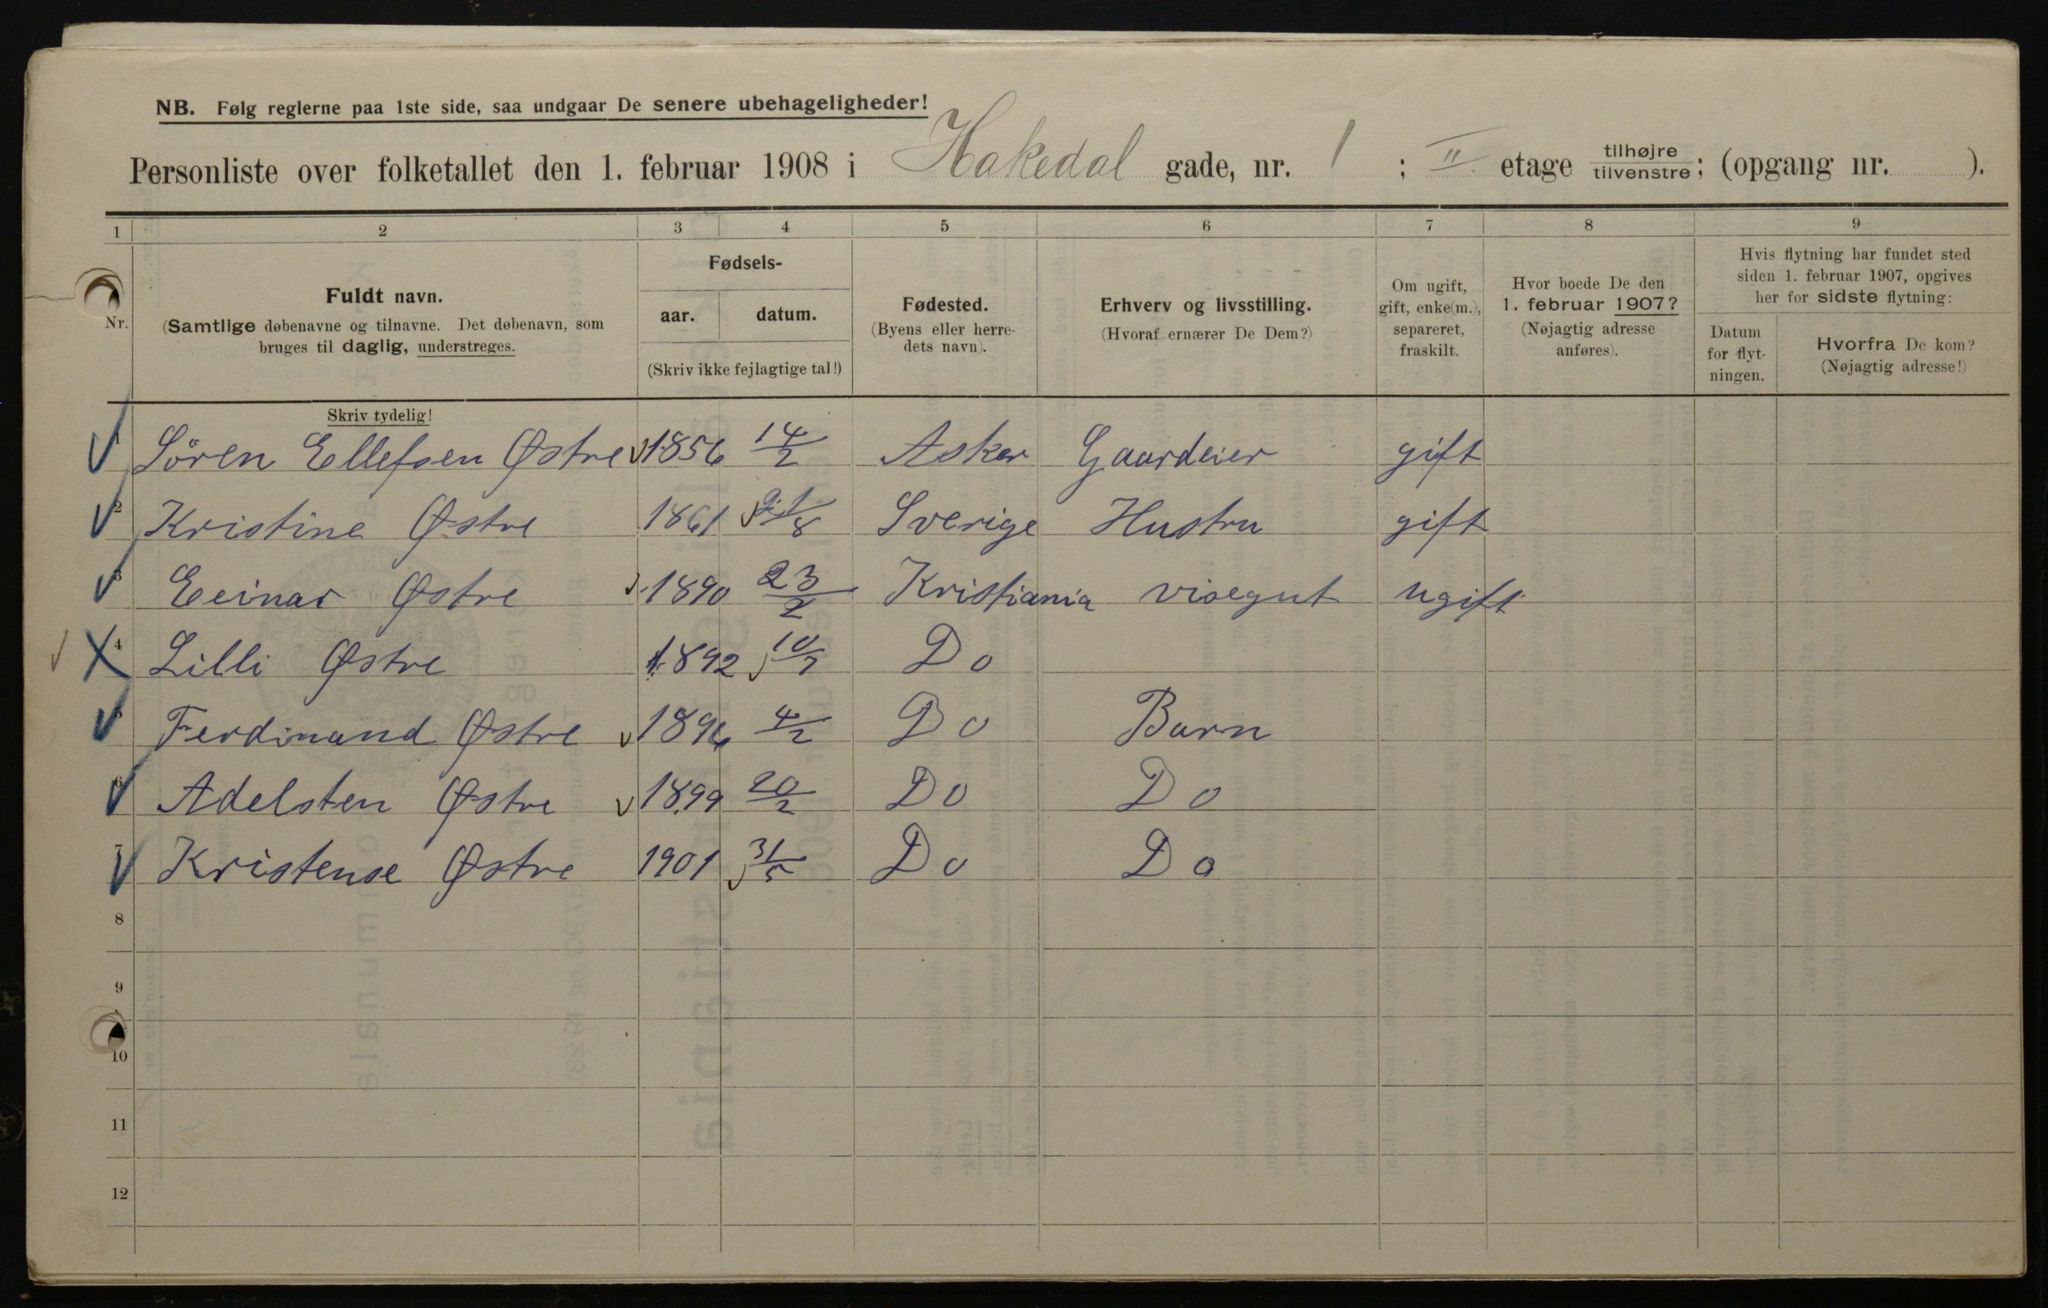 NB. Følg reglerne paa 1ste side, saa undgaar De senere ubehageligheder!
Personliste over folketallet den 1. februar 1908 i Hakedal gade, nr. 1; II etage tilhøjre tilvenstre; (opgang nr. ).
1 2 3 4 5 6 7 8 9
Nr.
Fuldt navn.
(Samtlige døbenavne og tilnavne. Det døbenavn, som
bruges til daglig, understreges.
Skriv tydelig!
Fødsels-
aar. datum.
(Skriv ikke fejlagtige tal!)
Fødested.
(Byens eller herre-
dets navn).
Erhverv og livsstilling.
(Hvoraf ernærer De Dem?)
Om ugift,
gift, enke(m.),
separeret,
fraskilt.
Hvor boede De den
1. februar 1907?
(Nøjagtig adresse
anføres).
Hvis flytning har fundet sted
siden 1. februar 1907, opgives
her for sidste flytning:
Datum
for flyt-
ningen.
Hvorfra De kom?
(Nøjagtig adresse!)
1 Sören Ellefsen Østre 1856 14/2 Asker Gaardeier gift
2 Kristine Østre 1861 21/8 Sverige Hustru gift
3 Eeinar Østre 1890 23/2 Kristiania visegut ugift
4 Lilli Østre 1892 10/7 Do
5 Ferdinand Østre 1896 4/2 Do Barn
6 Adelsten Østre 1899 20/2 Do Do
7 Kristense Østre 1901 31/5 Do Do
8
9
10
11
12